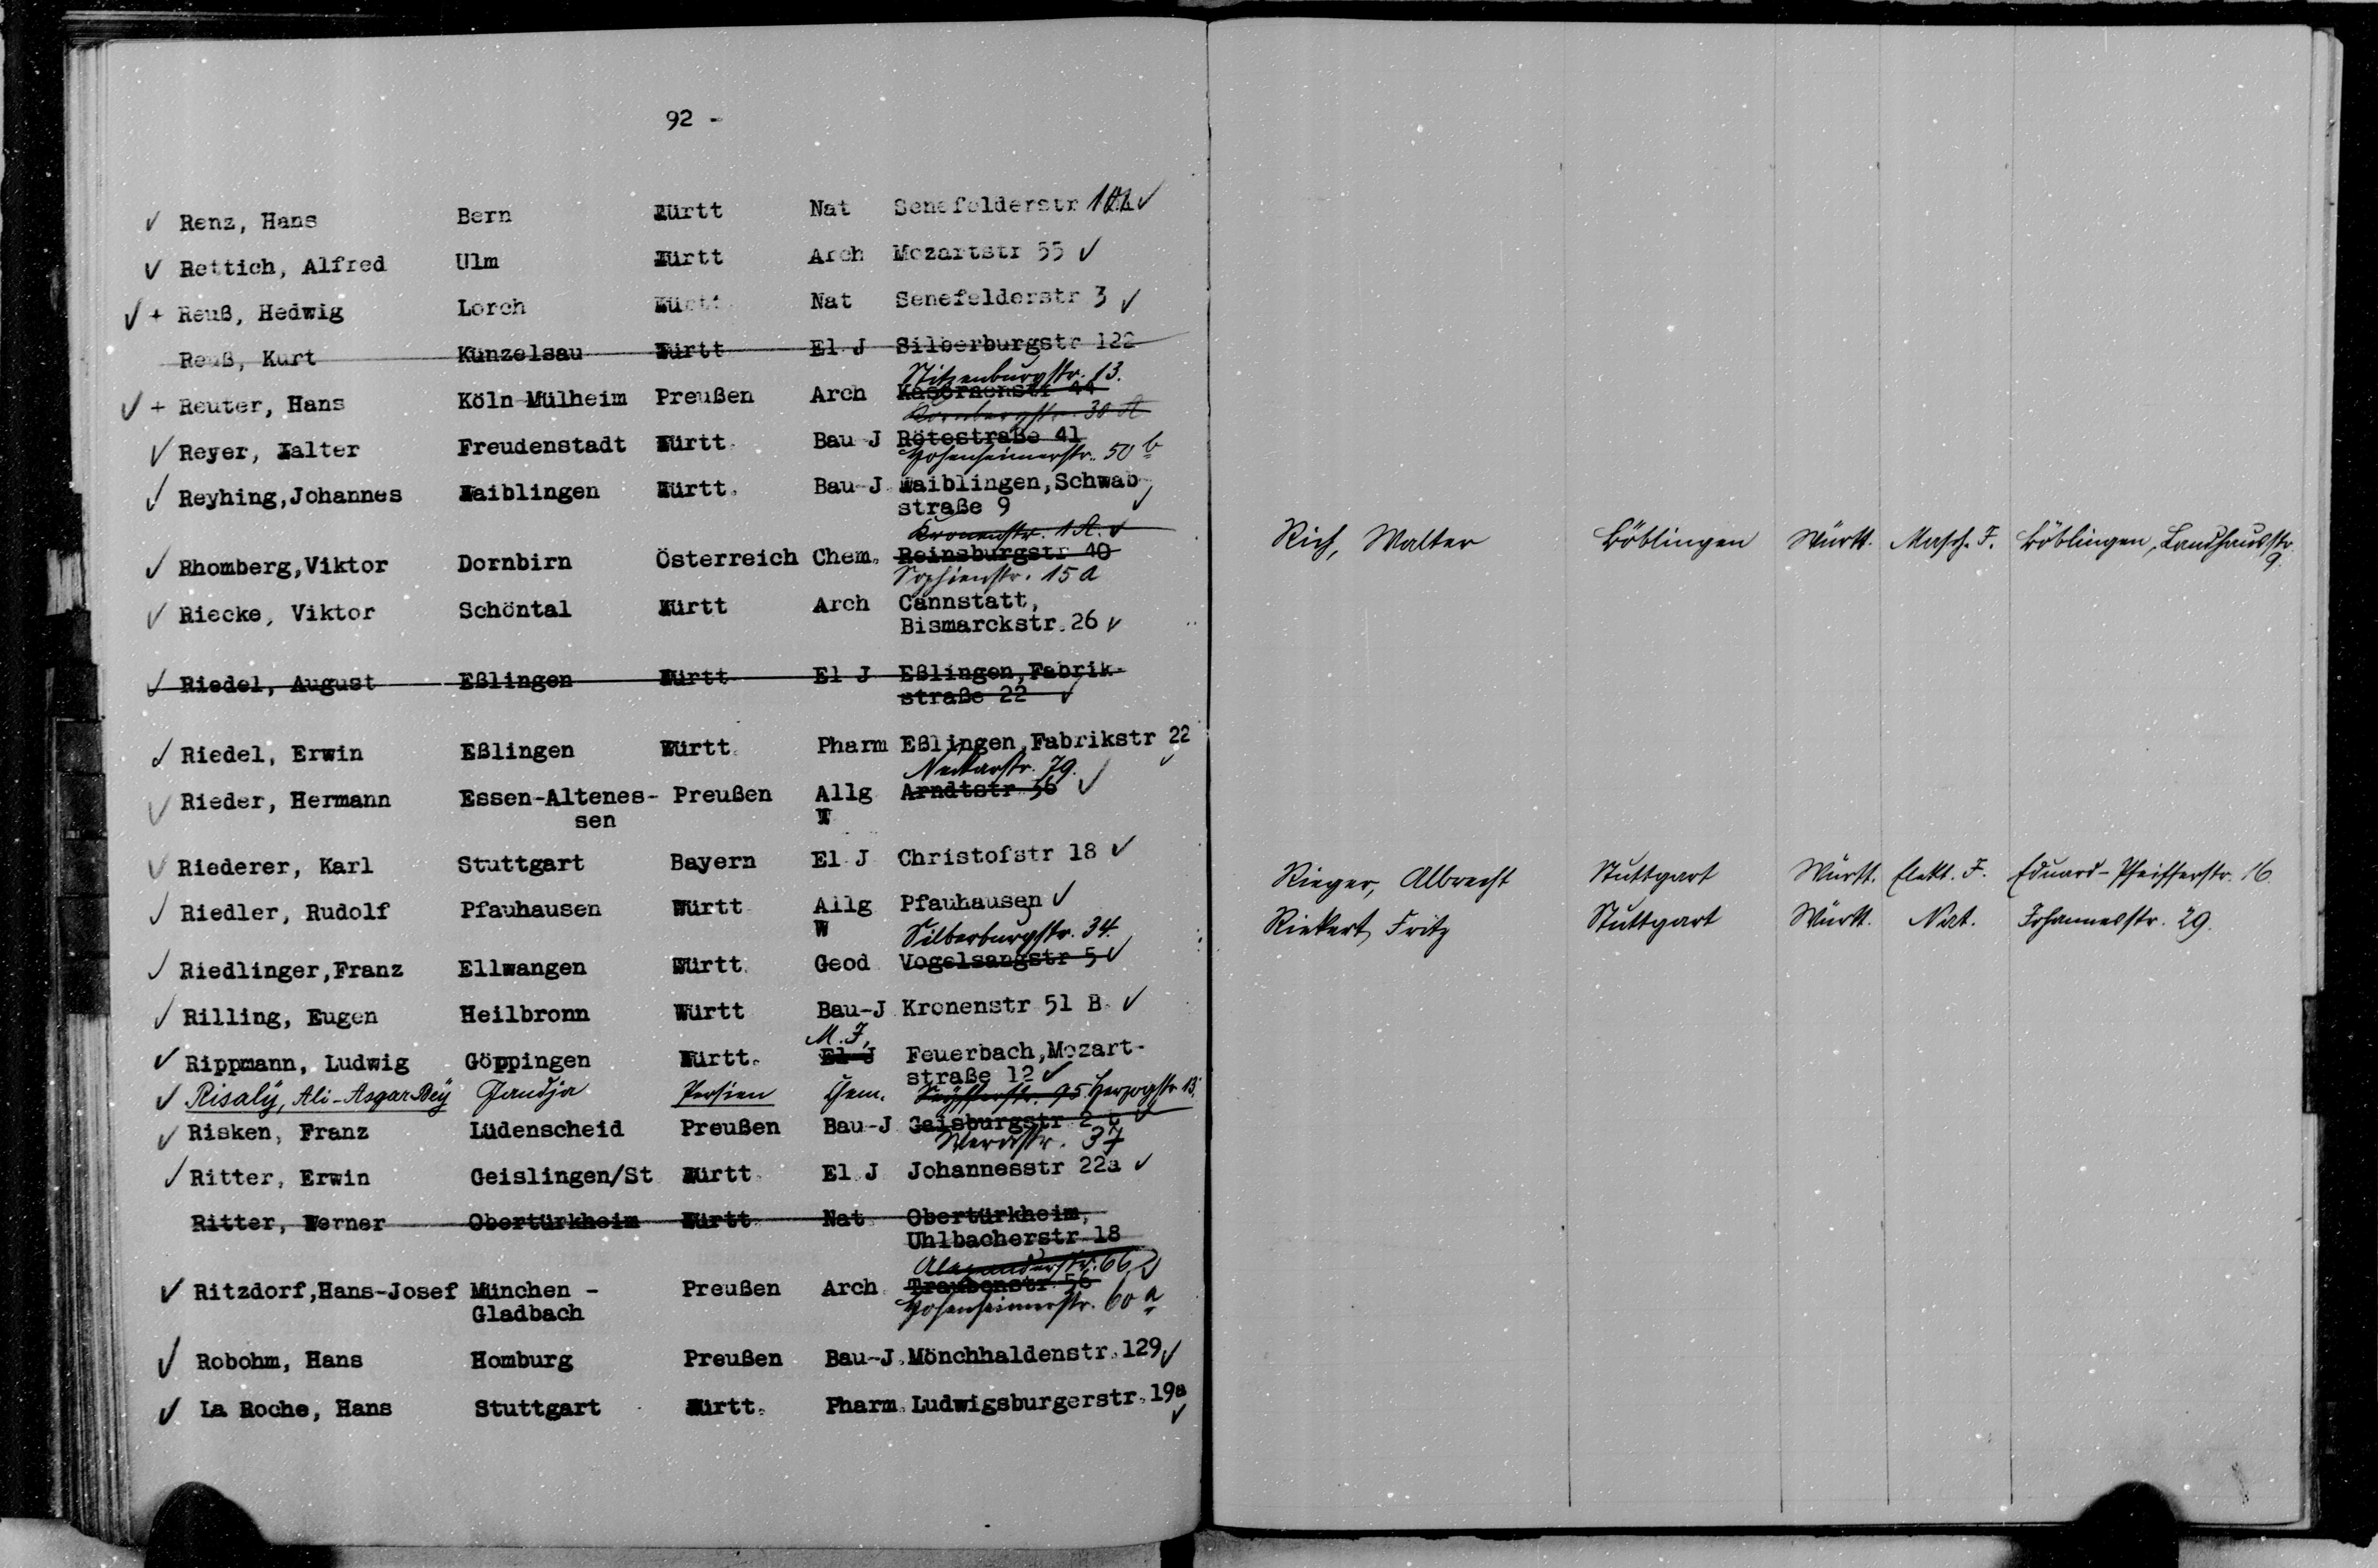 92 -
Renz, Hans Bern Württ Nat Senefelderstr
Rettich, Alfred Ulm Württ Arch Mozartstr 55
+ Reuß, Hedwig Lorch Württ Nat Senefelderstr 3
Reuß, Kurt Künzelsau Württ El J Silberburgstr 122
Stitzenburgstr. 13.
+ Reuter, Hans Köln-Mülheim Preußen Arch Kasernenstr 44
Kornbergstr. 30 A
Reyer, Walter Freudenstadt Württ. Bau J Rötestraße 41
Hohenheimerstr. 50 b
Reyhing,Johannes Waiblingen Württ. Bau-J Waiblingen,Schwab-
straße 9
Kronenstr. 1 A.
Rhomberg,Viktor Dornbirn Österreich Chem. Reinsburgstr 40
Sophienstr. 15 a
Riecke, Viktor Schöntal Württ Arch Cannstatt,
Bismarckstr.26
Riedel, August Eßlingen Württ El J Eßlingen,Fabrik-
straße 22
Riedel, Erwin Eßlingen Württ. Pharm Eßlingen,Fabrikstr 22
Neckarstr. 79.
Rieder, Hermann Essen-Altenes- Preußen Allg Arndtstr 36
sen W
Riederer, Karl Stuttgart Bayern El J Christofstr 18
Riedler, Rudolf Pfauhausen Württ Allg Pfauhausen
W Silberburgstr. 34.
Riedlinger,Franz Ellwangen Württ. Geod Vogelsangstr 5
Rilling, Eugen Heilbronn Württ Bau-J Kronenstr 51 B.
M. J.
Rippmann, Ludwig Göppingen Württ. El J Feuerbach,Mozart-
straße 12
Risalÿ, Ali-Asgar Beÿ Gandja Persien Chem. 95 Herzogstr 13.
Risken, Franz Lüdenscheid Preußen Bau-J Gaisburgstr 2
Werastr. 37
Ritter, Erwin Geislingen/St Württ. El J Johannesstr 22a
Ritter, Werner Obertürkheim Württ. Nat Obertürkheim,
Uhlbacherstr 18
Alexanderstr. 66
Ritzdorf,Hans-Josef München - Preußen Arch Traubenstr 56
Gladbach Hohenheimerstr. 60 a
Robohm, Hans Homburg Preußen Bau-J.Mönchhaldenstr.129
La Roche, Hans Stuttgart Württ. Pharm.Ludwigsburgerstr.19a
Rich, Walter Böblingen Württ. Masch. J. Böblingen, Landhausstr.
9.
Rieger, Albrecht Stuttgart Württ. Elekt. J. Eduard-Pfeifferstr. 16.
Riekert, Fritz Stuttgart Württ. Nat. Johannesstr. 29.